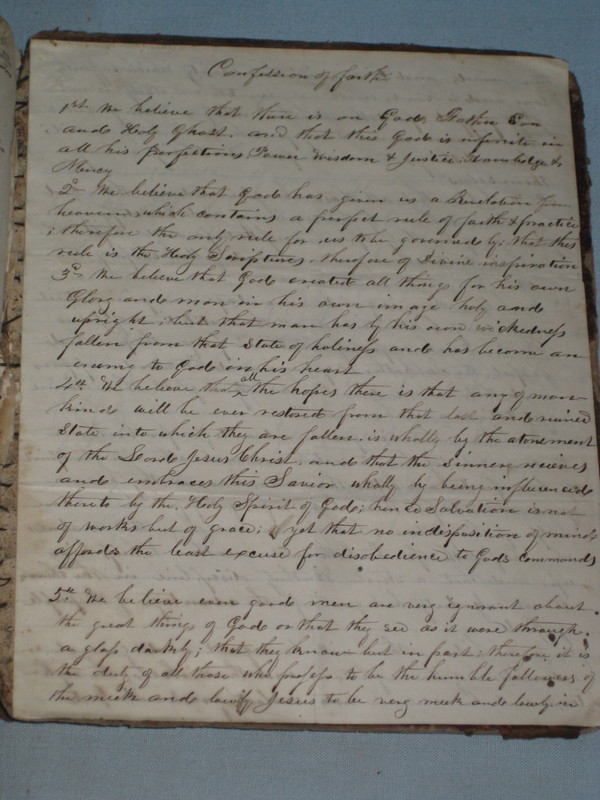 Confession of faith
1st We believe that there is on God, Father Son
and Holy Ghost. and that this God is infinite in
all his perfections, Power Wisdom & Justice Knowledge &
Mercy
2d We believe that God has given us a Revelation from
heaven which contains a perfect rule of faith & practice
; therefore the only rule for us to be governed by; that this
rule is the Holy Scriptures. therefore of Divine inspiration
3d We believe that God created all things for his own
Glory and man in his own image holy and
upright; but that man has by his own wickedness
fallen from that State of holiness and has become an
enemy to God in his heart
4th We believe that all the hopes there is that any of man-
kind will be ever restored from that lost and ruined
State into which they are fallen. is wholly by the atonement
of the Lord Jesus Christ. and that the Sinner recieves
and embraces this Savior wholly by being influenced
thereto by the. Holy Spirit of God; hence Salvation is not
of works but of grace; yet that no indisposition of mind
affords the least excuse for disobedience to Gods commands
5th We believe even good men are very ignorant about
the great things of God or that they see as it were through
a glass darkly; that they know but in part; therefore it is
the duty of all those who profess to be the humble followers of
the meek and lowly Jesus to be very meek and lowly in